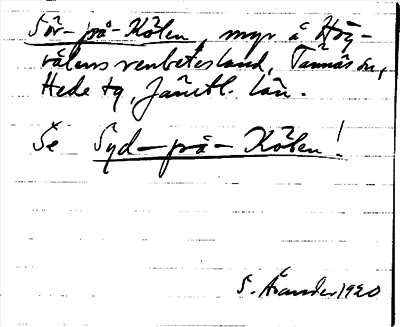 Sör-på-Kölen, myr å Hög-
vålens renbetesland, Tännäs sn,
Hede tg, Jämtl. län.
Se Syd-på-Kölen!
S. Ånander 1920